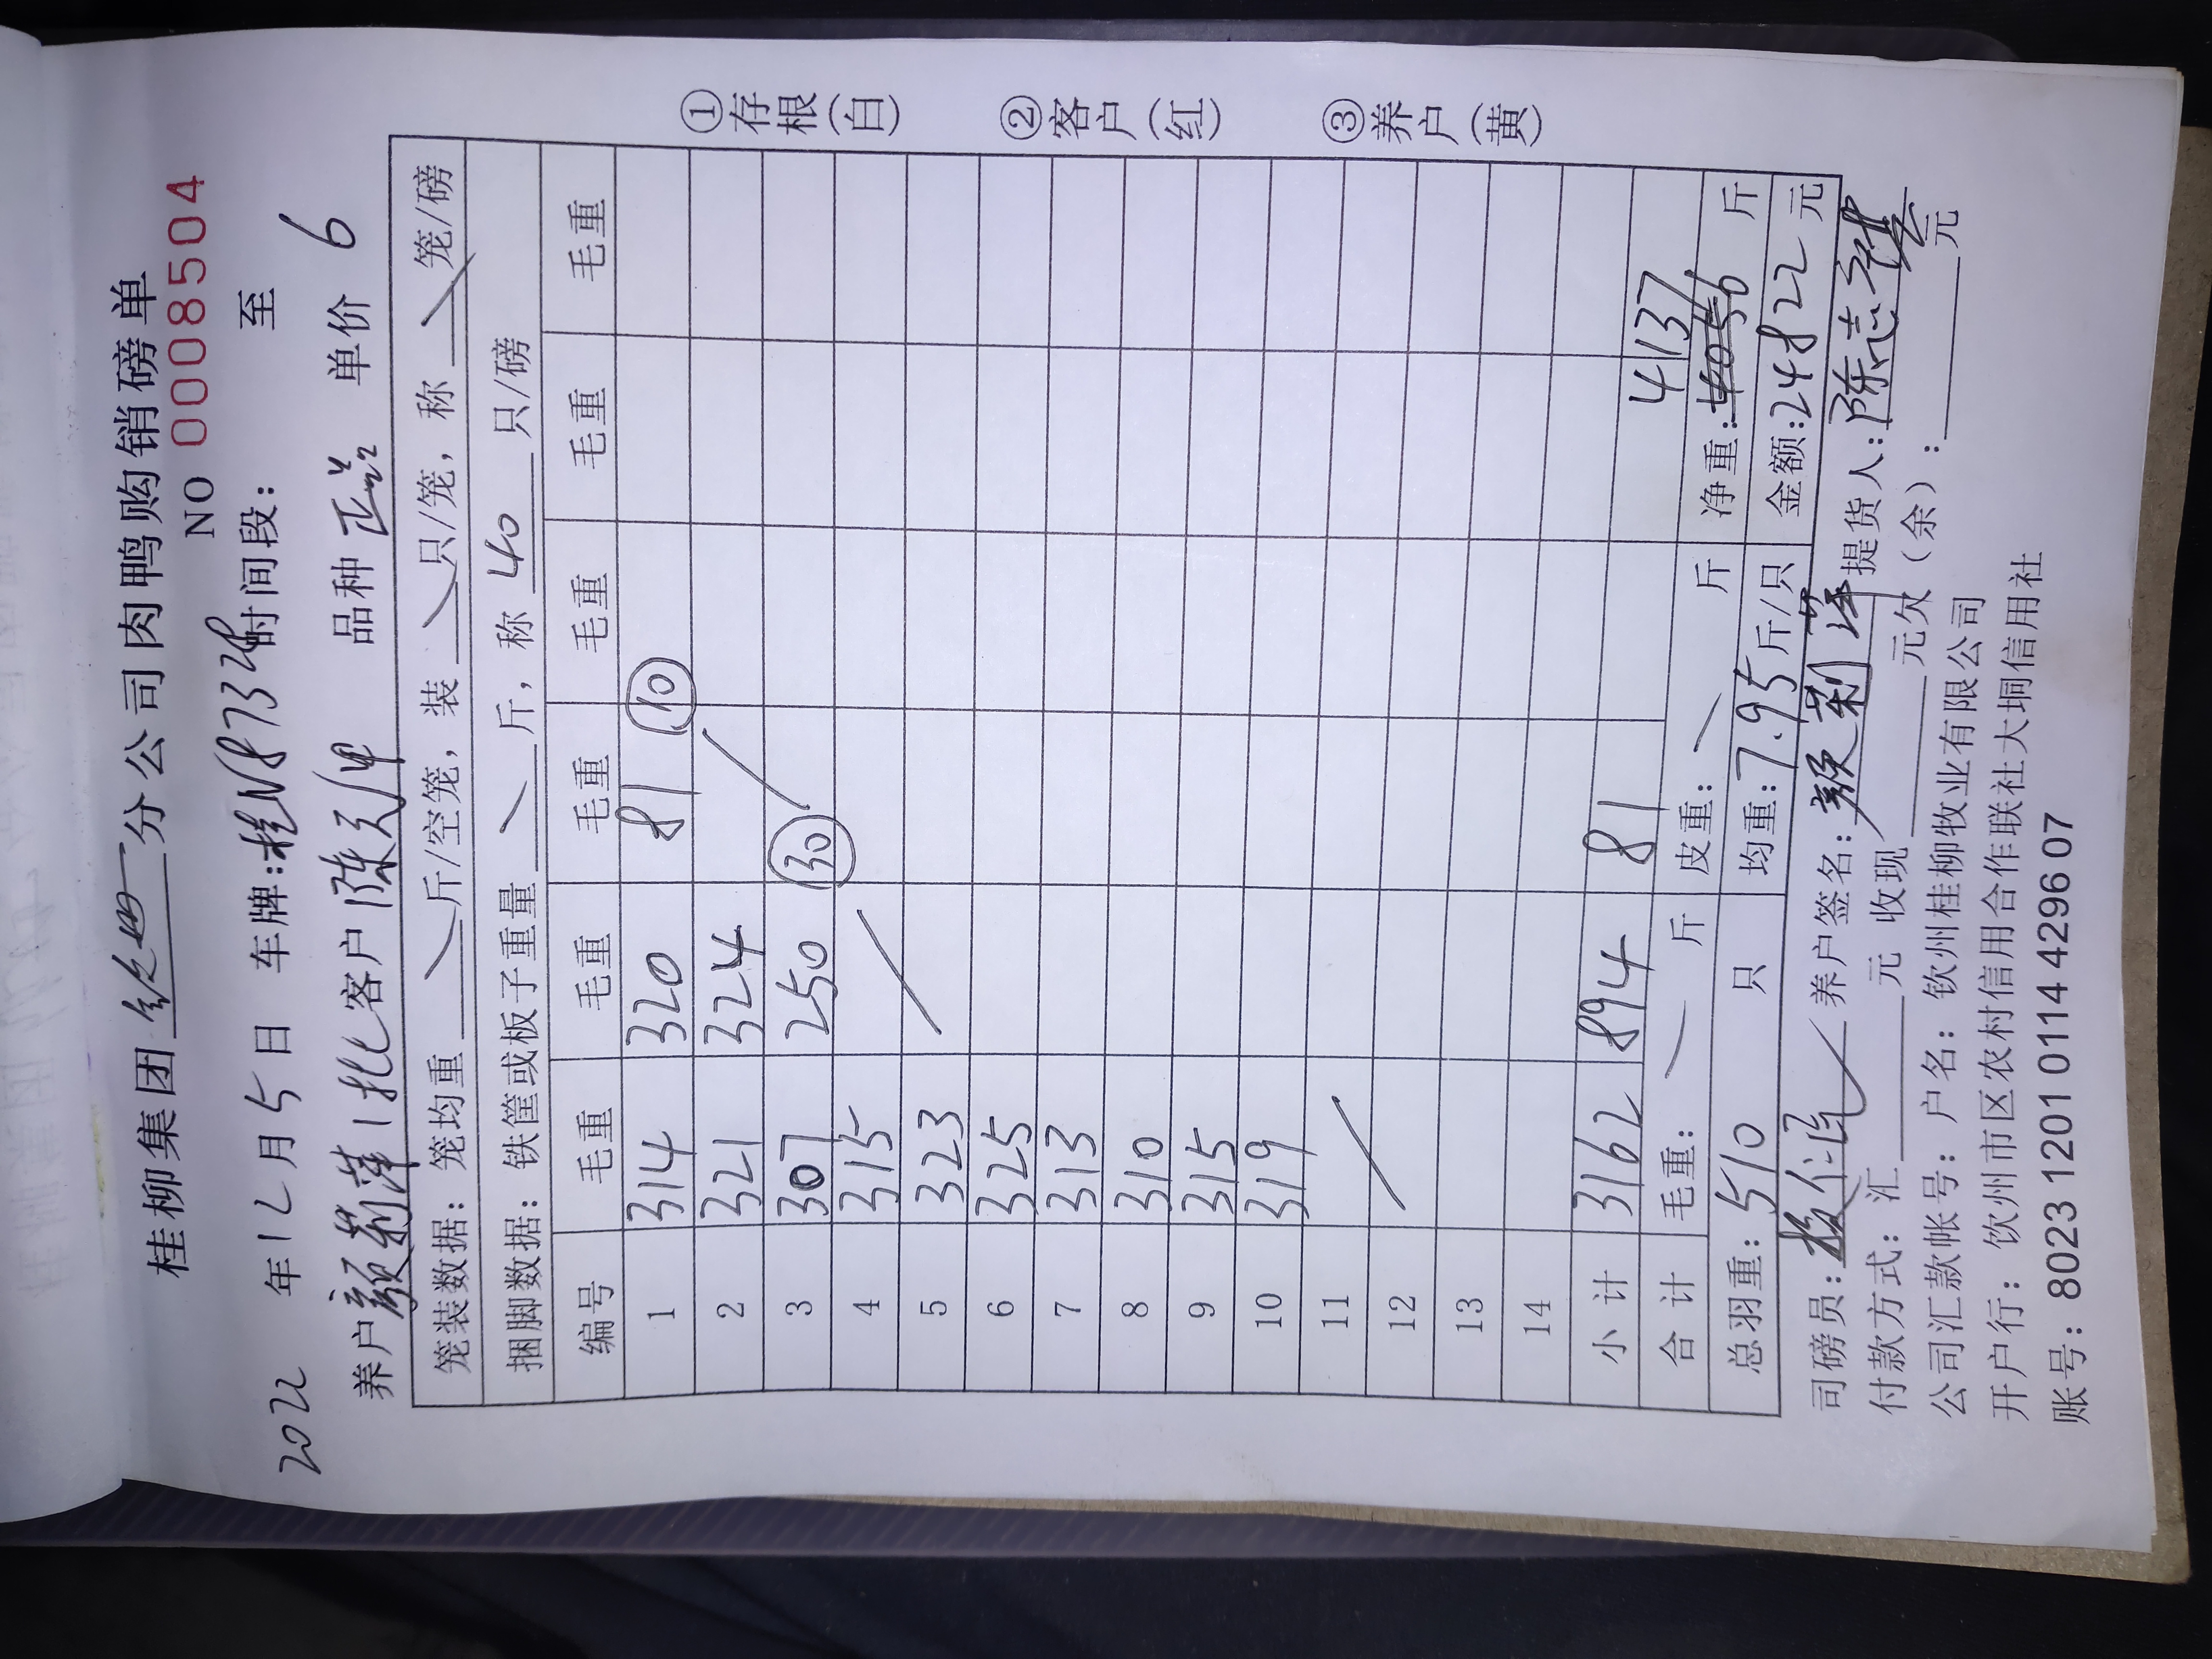 桂柳集团 分公司肉鸭购销磅单
NO 0008504
2022 年 12 月 5 日 车牌:桂N8732 时间段: 至
养户 颜莉萍1批 客户 陈 品种 正 单价 6
笼装数据: 笼均重 斤/空笼, 装 只/笼, 称 笼/磅
捆脚数据: 铁筐或板子重量 斤, 称 40 只/磅
编号 毛重 毛重 毛重 毛重 毛重 毛重
1 314 320 81 10
2 321 324
3 307 250 30
4 315
5 323
6 325
7 313
8 310
9 315
10 319
11
12
13
14
小计 3162 894 81 4137
合计 毛重: 斤 皮重: 斤 净重: 4056 斤
总羽重: 510 只 均重: 7.95 斤/只 金额: 24822 元
司磅员: 养户签名: 颜莉萍 提货人: 陈志强
付款方式: 汇 元 收现 元欠(余): 元
公司汇款帐号: 户名: 钦州桂柳牧业有限公司
开户行: 钦州市区农村信用合作联社大垌信用社
账号: 8023 1201 0114 4296 07
①存根(白)
②客户(红)
③养户(黄)